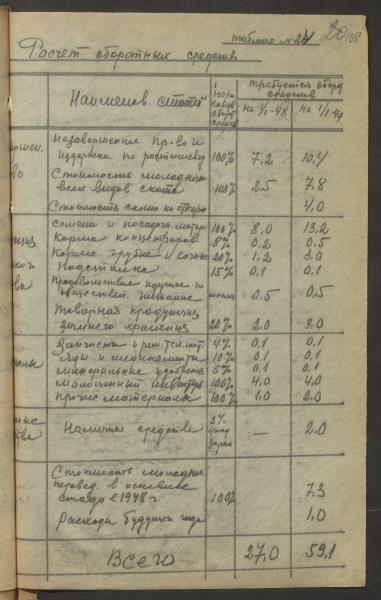 таблица № 24
108
Расчет оборотных средств
Наименов. статей
Норма
оборот
средств
требуется оборот
средств
На 1/I-48
На 1/I-49
Незавершенное пр-во и
издержки по растениевод 100% 7,2 10,4
Стоимость молодняка
всех видов скота 100% 2,5 7,8
Стоимость скота на откорм 4,0
Семена и посадоч. матер 100% 8,0 13,2
Корма концетриров 8% 0,2 0,5
Корма грубые и сочные 20% 1,2 3,0
Подстилка 15% 0,1 0,1
Продовольствие идущее на
обществен. питание 0,5 0,5
Товарная продукция
зимнего хранения 20% 2,0 3,0
Запчасти и рем. тех. мат 4% 0,1 0,1
Яды и медикаменты 10% 0,1 0,1
минеральные удобрения 5% 0,1 0,1
Малоценный инвентарь 100% 4,0 4,0
Прочие материалы 100% 1,0 2,0
Наличие средств 2% фонд зарпл — 2,0
Стоимость молодняка
перевед. в основное
стадо в 1948 г. 100% 7,3
Расходы будущего года 1,0
Всего 27,0 59,1